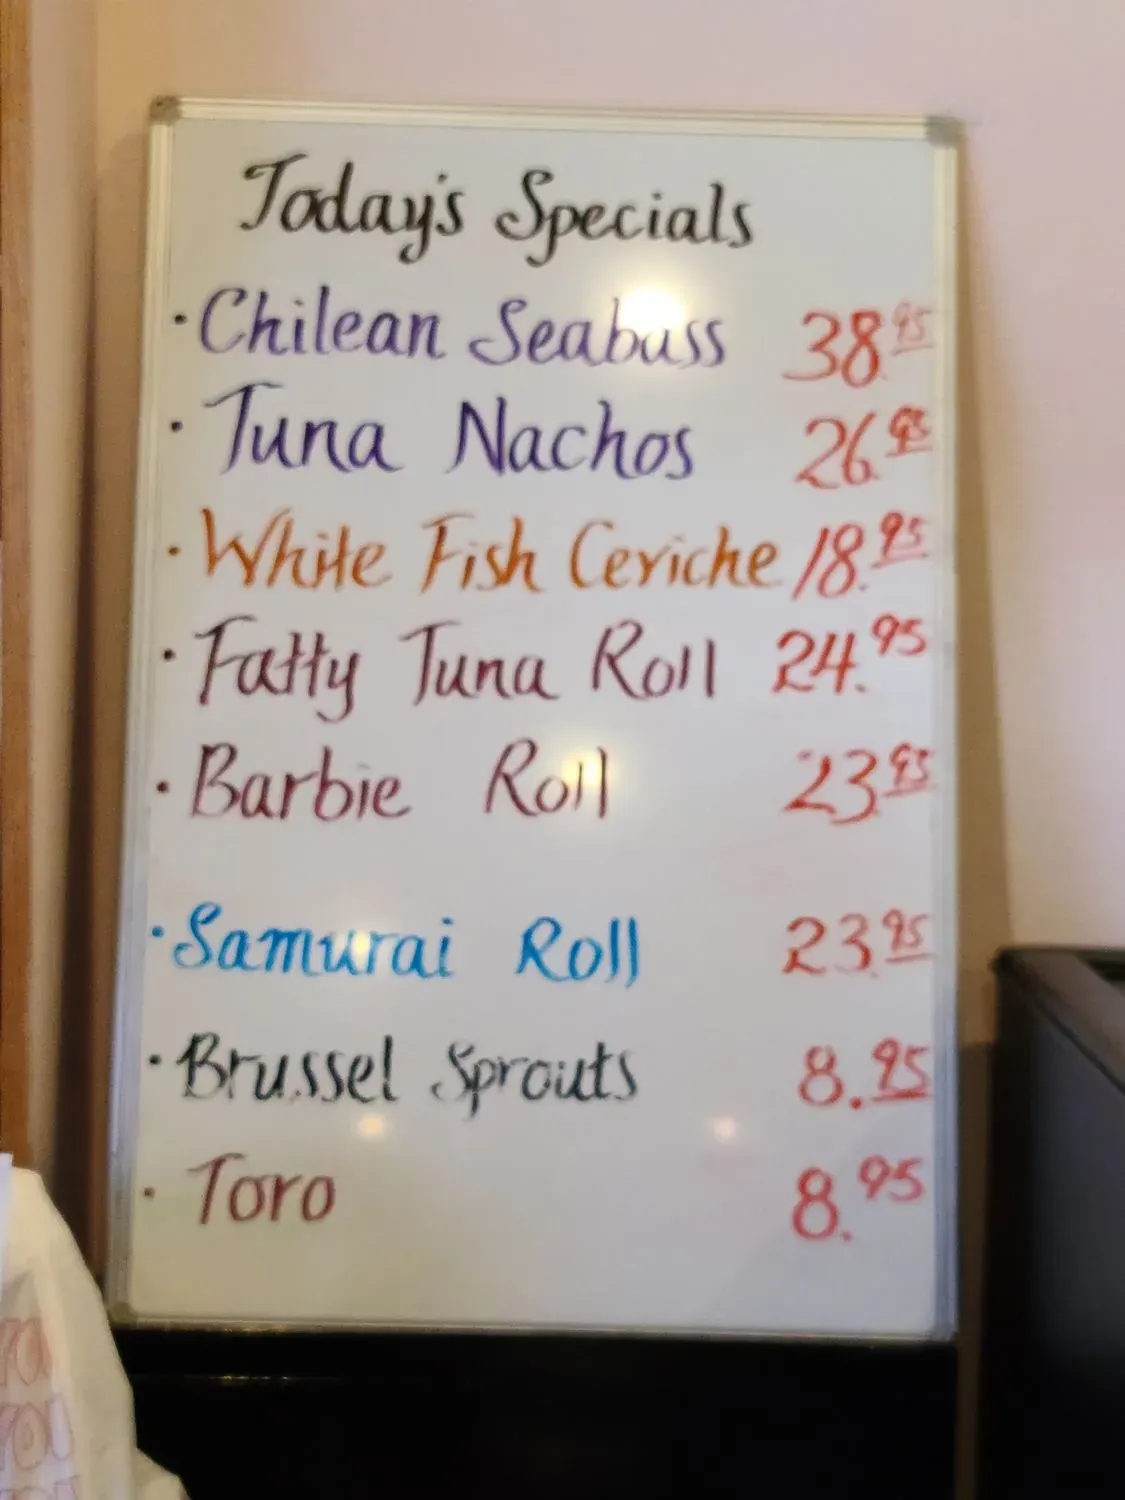 Today's Specials
· Chilean Seabass 38.95
· Tuna Nachos 26.95
· White Fish Ceviche 18.95
· Fatty Tuna Roll 24.95
· Barbie Roll 23.95
· Samurai Roll 23.95
· Brussel Sprouts 8.95
· Toro 8.95